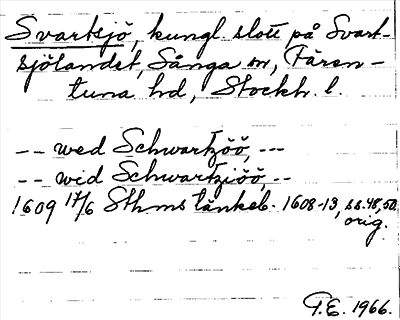 Svartsjö, kungl slott på Svart-
sjölandet, Sånga sn, Fären-
tuna hd, Stockh. l.
-- wed Schwartzöö, ---
-- wid Schwartziöö, --
1609 17/6 Sthms tänkeb. 1608-13, ss. 48, 50,
orig.
G.E. 1966.